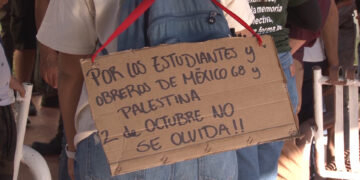 POR LOS ESTUDIANTES Y
OBREROS DE MÉXICO 68 Y
PALESTINA
2 de OCTUBRE NO
SE OLVIDA!!
memoria